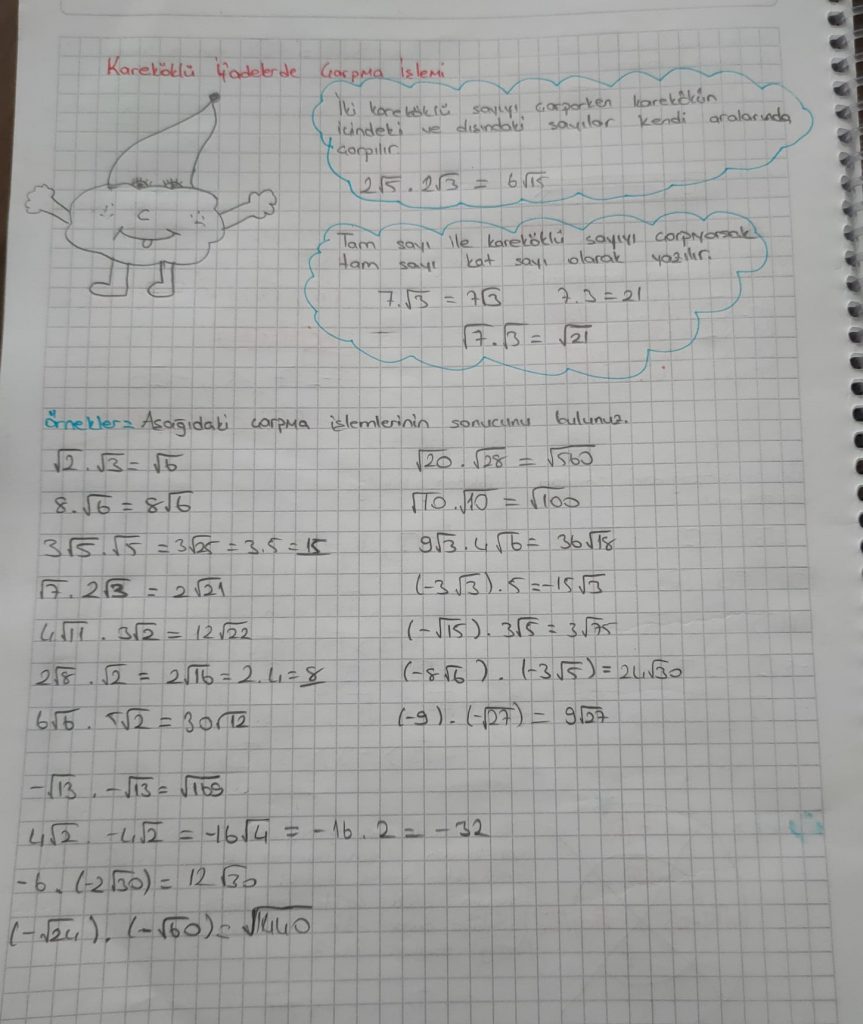 Kareköklü İfadelerde Çarpma İşlemi
İki kareköklü sayıyı çarparken karekökün
içindeki ve dışındaki sayılar kendi aralarında
çarpılır.
2√5 . 2√3 = 6√15
Tam sayı ile kareköklü sayıyı çarpıyorsak
tam sayı kat sayı olarak yazılır.
7.√3 = 7√3 7.3 = 21
√7.√3 = √21
Örnekler= Aşağıdaki çarpma işlemlerinin sonucunu bulunuz.
√2 . √3 = √6
8.√6 = 8√6
3√5.√5 = 3√25 = 3.5 = 15
√7 . 2√3 = 2√21
4√11 . 3√2 = 12√22
2√8 . √2 = 2√16 = 2.4 = 8
6√6 . 5√2 = 30√12
√20 . √28 = √560
√10.√10 = √100
9√3.4√6 = 36√18
(-3√3).5 = -15√3
(-√15). 3√5 = 3√75
(-8√6) . (-3√5) = 24√30
(-9) . (-√27) = 9√27
-√13 . -√13 = √169
4√2 . -4√2 = -16√4 = -16 . 2 = -32
-6. (-2√30) = 12√30
(-√24). (-√60) = √1440